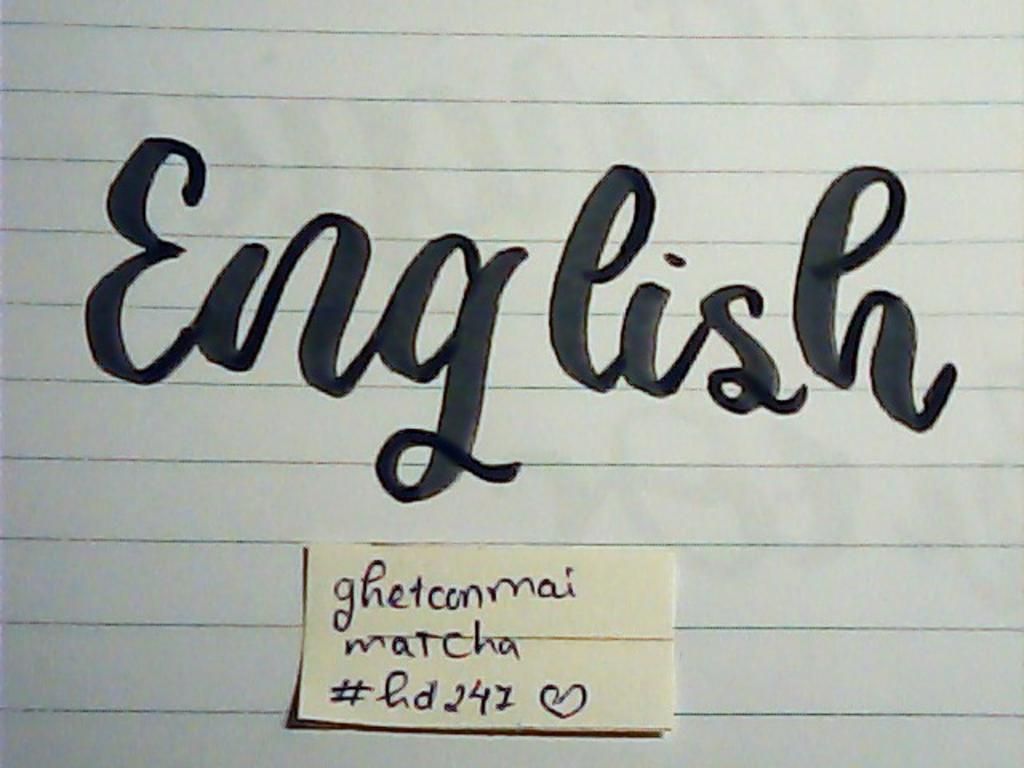 English
ghetconmai
matcha
#hd247 ♡